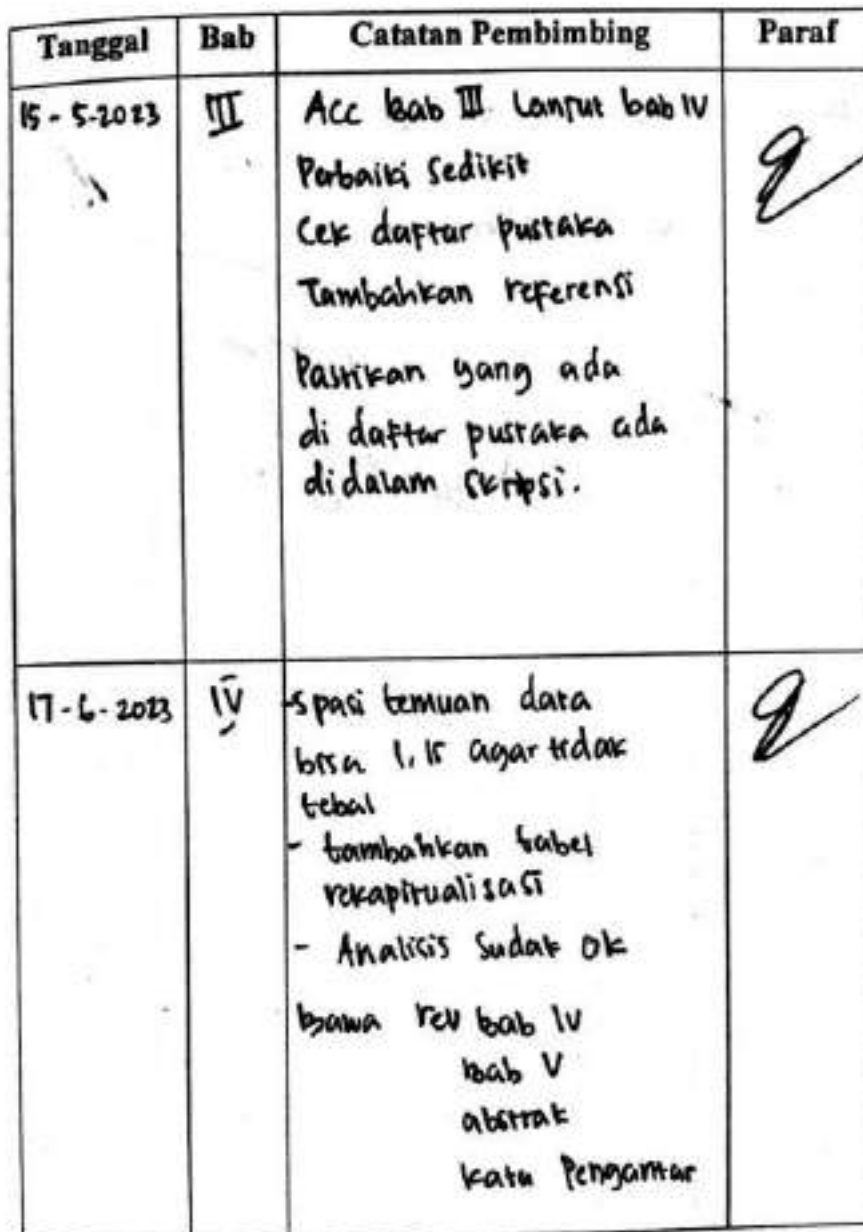 Tanggal Bab Catatan Pembimbing Paraf
15-5-2023 III Acc Bab III Lanjut bab IV
Perbaiki Sedikit
Cek daftar pustaka
Tambahkan referensi
Pastikan yang ada
di daftar pustaka ada
didalam skripsi.
17-6-2023 IV -spasi temuan data
bisa 1,15 agar tidak
tebal
- tambahkan tabel
rekapitualisasi
- Analisis Sudah Ok
bawa rev bab IV
bab V
abstrak
kata Pengantar